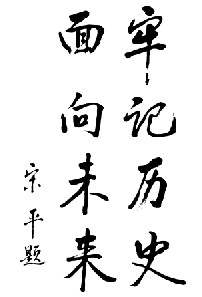 牢记历史
面向未来
宋平题